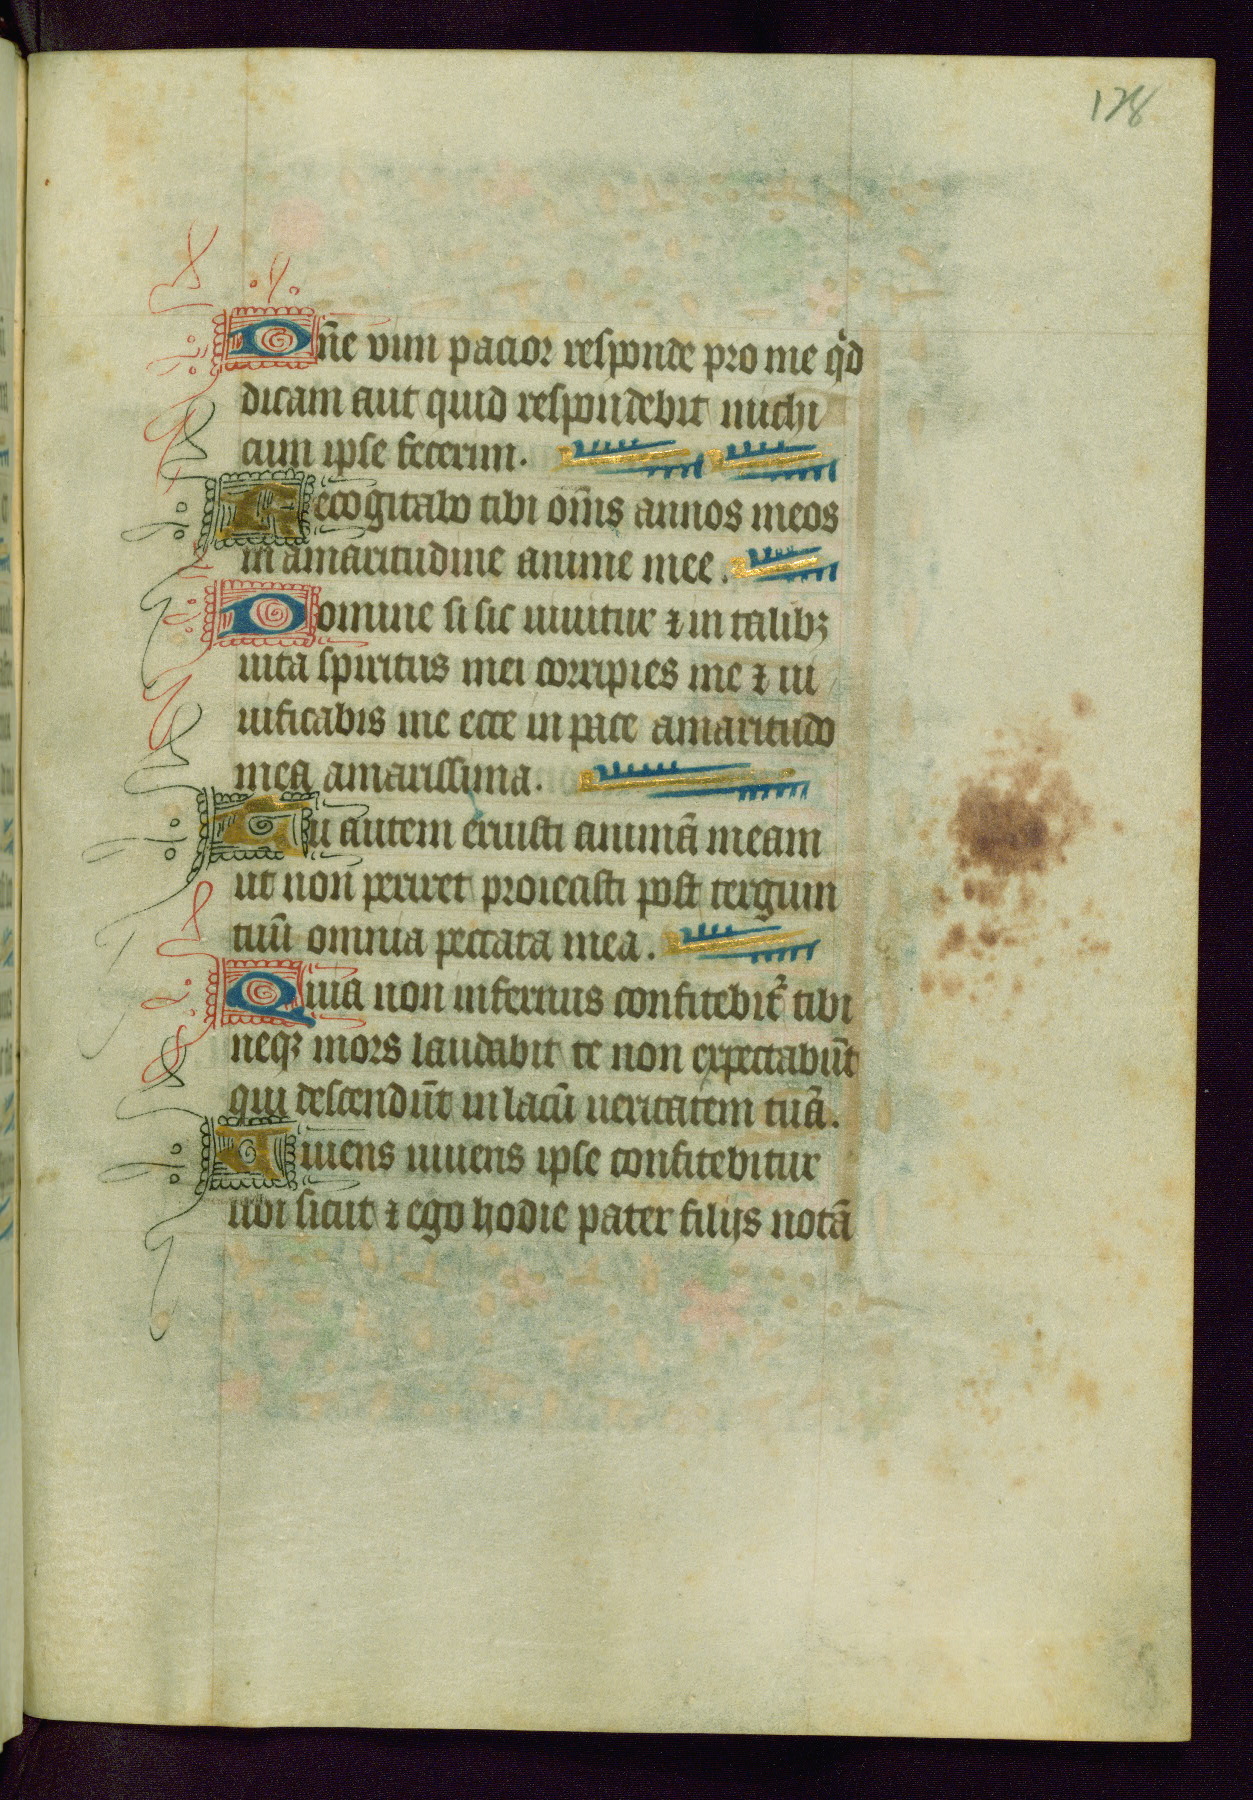 128
Dn̄e vim pacior responde pro me qͥd
dicam aut quid respondebit michi
cum ipse fecerim.
Recogitabo tibi om̄s annos meos
in amaritudine anime mee.
Domine si sic uiuitur ⁊ in talibꝫ
uita spiritus mei corripies me ⁊ ui
uificabis me ecce in pace amaritudo
mea amarissima.
Tu autem eruisti animā meam
ut non periret proiecisti post tergum
tuū omnia peccata mea.
Quia non infernus confitebit᷑ tibi
neqꝫ mors laudabit te non expectabūt
qui descendūt in lacū ueritatem tuā.
Viuens uiuens ipse confitebitur
tibi sicut ⁊ ego hodie pater filijs notā